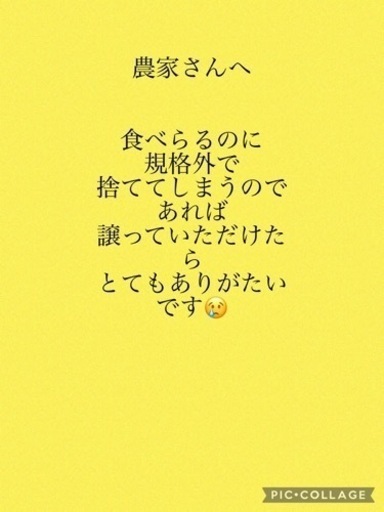 農家さんへ
食べらるのに
規格外で
捨ててしまうので
あれば
譲っていただけた
ら
とてもありがたい
です😢
PIC•COLLAGE